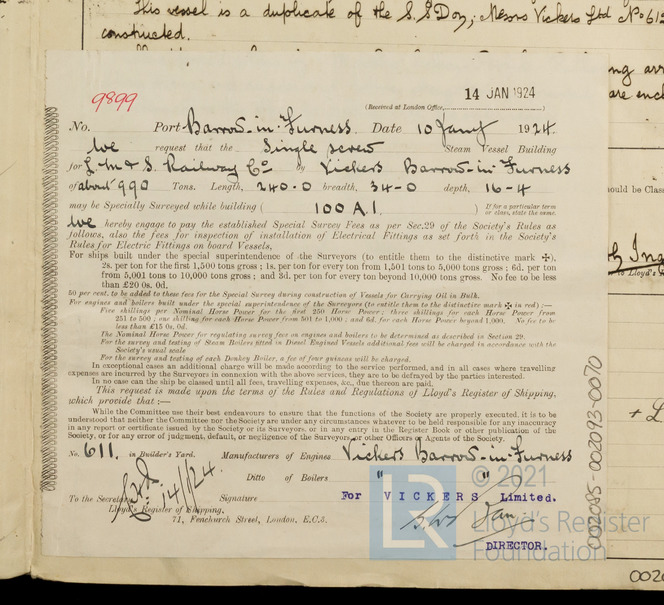 This vessel is a duplicate of the S.S. Don, Messrs Vickers Ltd No 612
constructed.
ng arr
are enc
14 JAN 1924
(Received at London Office,
9899
No. Port Barrow-in-Furness Date 10 Jany 1924.
We request that the Single screw Steam Vessel Building
for L. M & S. Railway Co by Vickers Barrow-in-Furness
of about 990 Tons. Length, 240.0 breadth, 34-0 depth, 16-4
may be Specially Surveyed while building ( 100 A.1. ) If for a particular term or class, state the same.
We hereby engage to pay the established Special Survey Fees as per Sec.29 of the Society's Rules as
follows, also the fees for inspection of installation of Electrical Fittings as set forth in the Society's
Rules for Electric Fittings on board Vessels,
For ships built under the special superintendence of the Surveyors (to entitle them to the distinctive mark ✠),
2s. per ton for the first 1,500 tons gross; 1s. per ton for every ton from 1,501 to 5,000 tons gross; 6d. per ton
from 5,001 tons to 10,000 tons gross; and 3d. per ton for every ton beyond 10,000 tons gross. No fee to be
less than £20 0s. 0d.
50 per cent. to be added to these fees for the Special Survey during construction of Vessels for Carrying Oil in Bulk.
For engines and boilers built under the special superintendence of the Surveyors (to entitle them to the distinctive mark ✠ in red) :—
Five shillings per Nominal Horse Power for the first 250 Horse Power; three shillings for each Horse Power from
251 to 500; one shilling for each Horse Power from 501 to 1,000; and 6d. for each Horse Power beyond 1,000. No fee to be
less than £15 0s. 0d.
The Nominal Horse Power for regulating survey fee on engines and boilers to be determined as described in Section 29.
For the survey and testing of Steam Boilers fitted in Diesel Engined Vessels additional fees will be charged in accordance with the
Society's usual scale
For the survey and testing of each Donkey Boiler, a fee of four guineas will be charged.
In exceptional cases an additional charge will be made according to the service performed, and in all cases where travelling
expenses are incurred by the Surveyors in connection with the above services, they are to be defrayed by the parties interested.
In no case can the ship be classed until all fees, travelling expenses, &c., due thereon are paid.
This request is made upon the terms of the Rules and Regulations of Lloyd's Register of Shipping,
which provide that:—
While the Committee use their best endeavours to ensure that the functions of the Society are properly executed, it is to be
understood that neither the Committee nor the Society are under any circumstances whatever to be held responsible for any inaccuracy
in any report or certificate issued by the Society or its Surveyors, or in any entry in the Register Book or other publication of the
Society, or for any error of judgment, default, or negligence of the Surveyors or other Officers or Agents of the Society.
No. 611. in Builder's Yard. Manufacturers of Engines Vickers Barrow-in-Furness
Ditto of Boilers " "
To the Secretary, Signature For VICKERS Limited.
14/1/24
Lloyd's Register of Shipping,
71, Fenchurch Street, London, E.C.3.
DIRECTOR.
ould be Class
to Lloyd's
002085-002093-0070
LR
© 2021
Lloyd's Register
Foundation